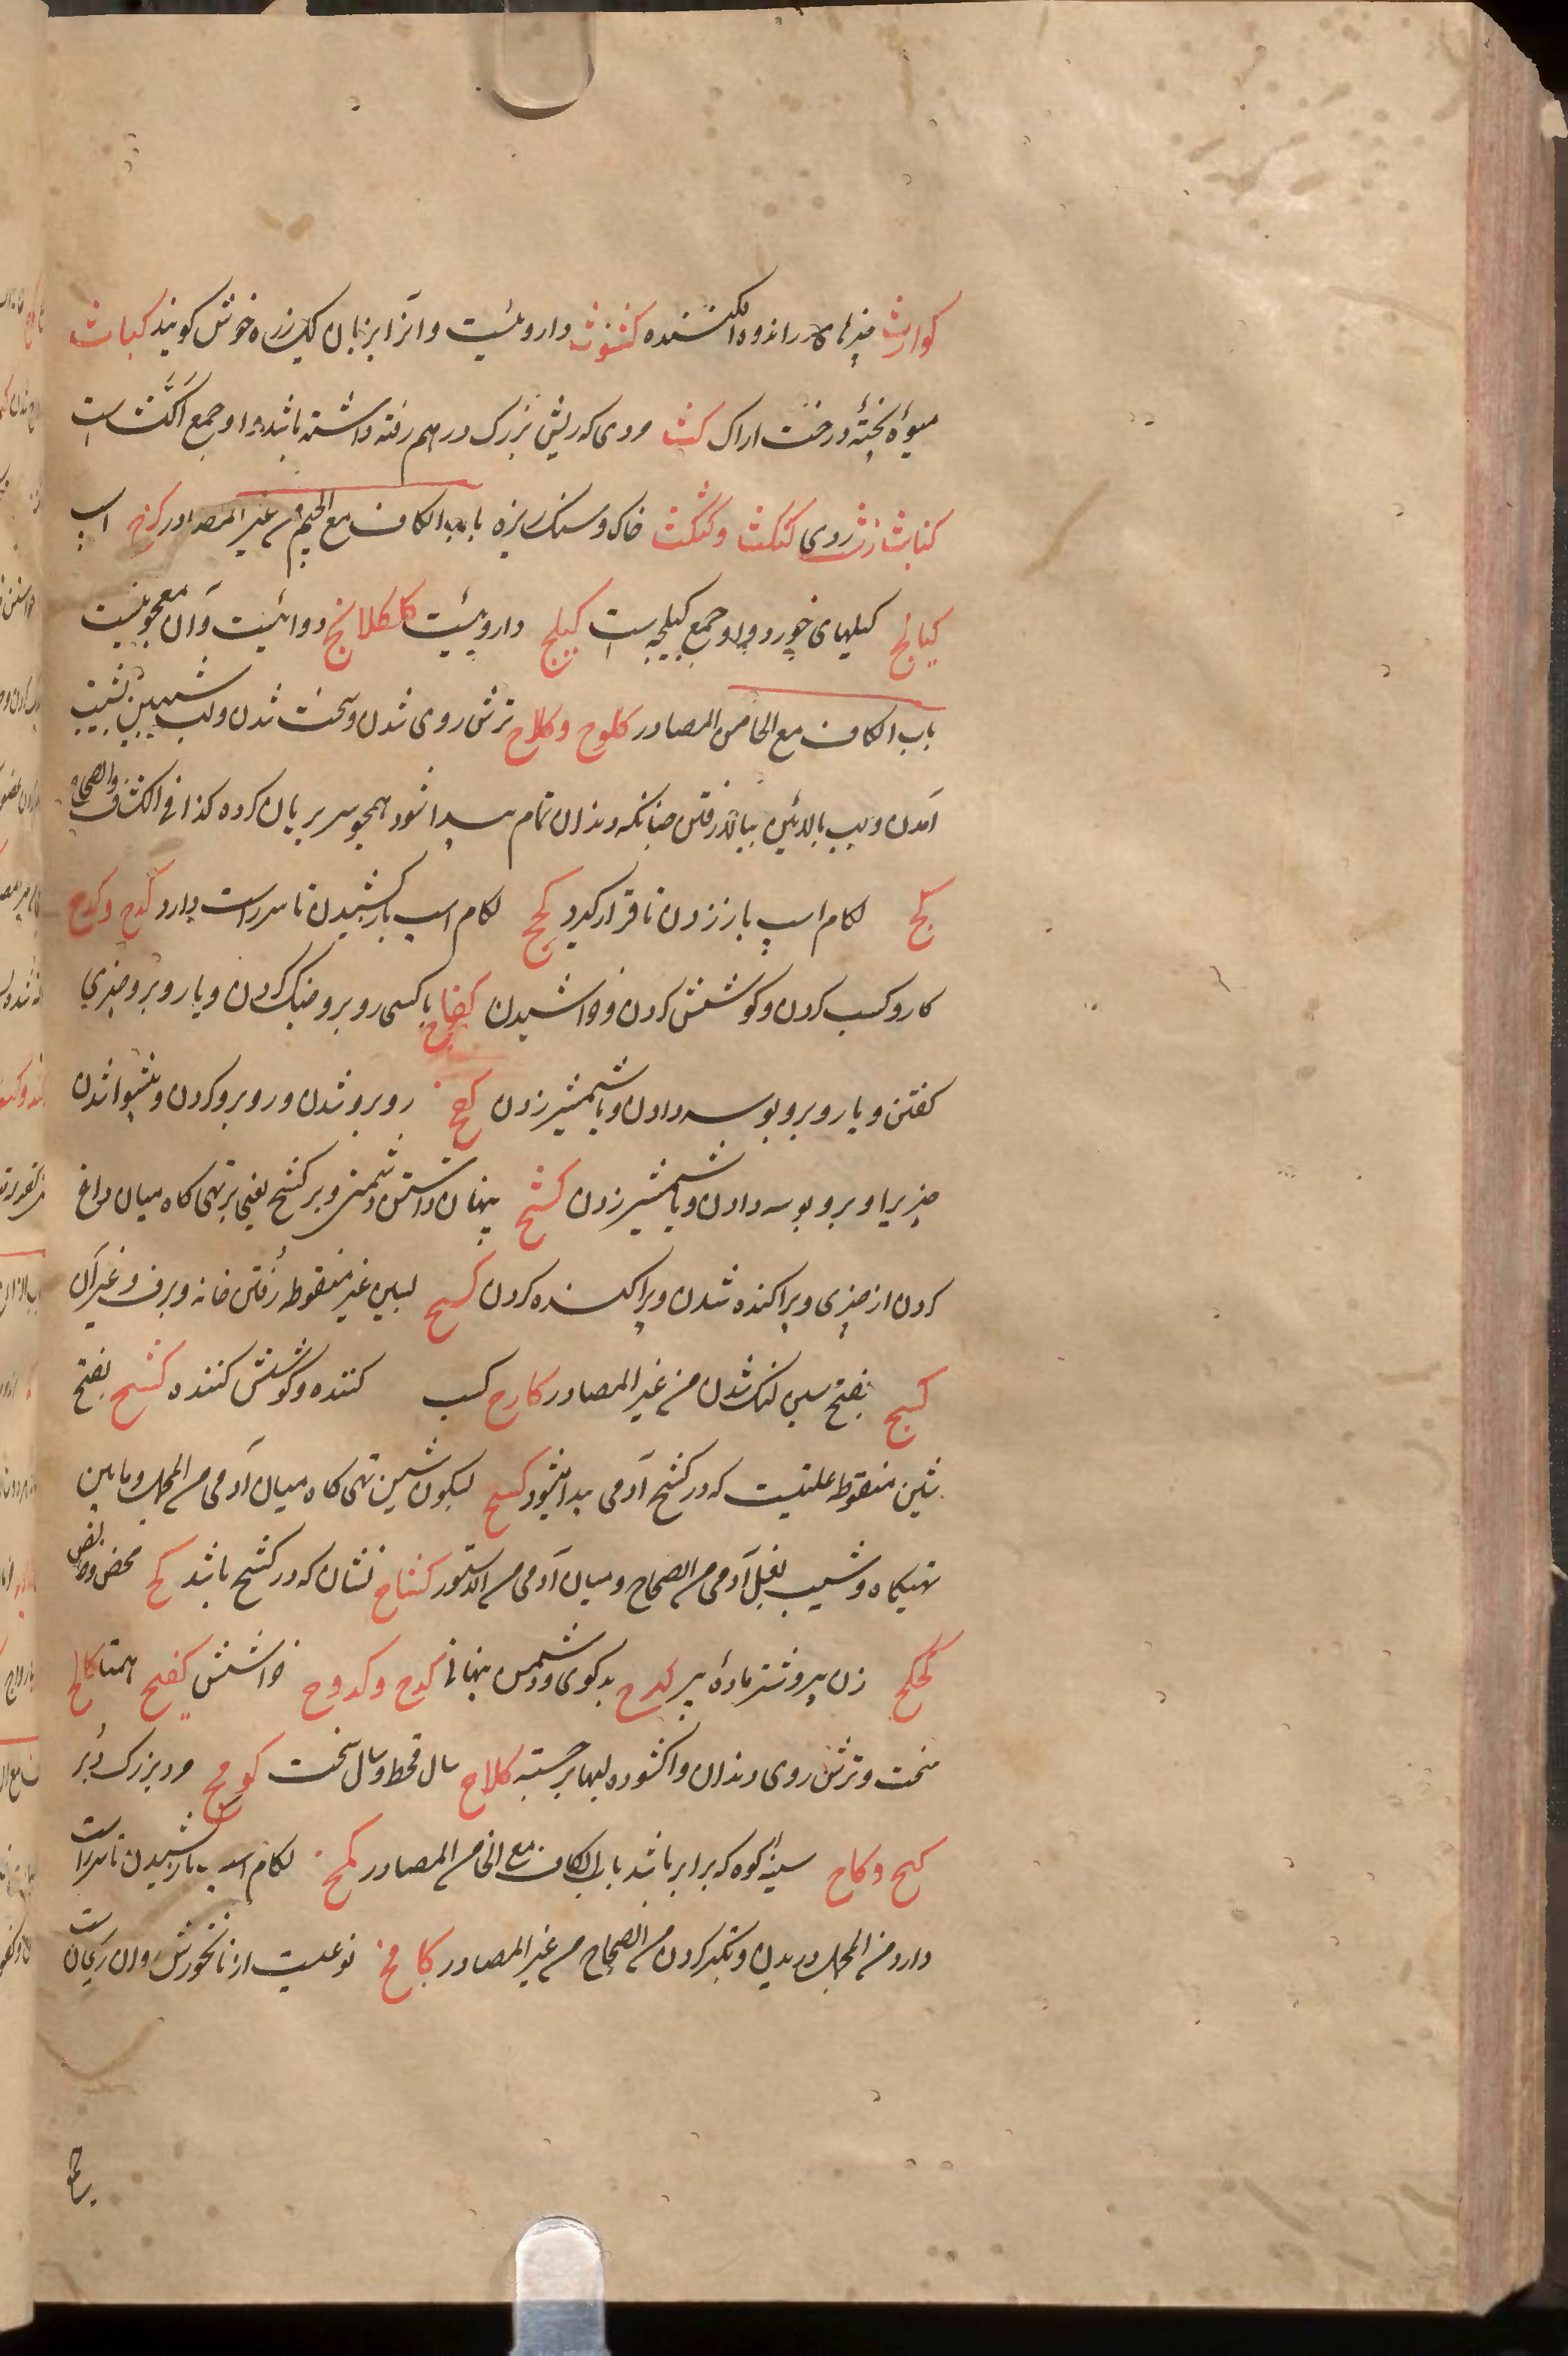 کوارث چیزهای در اندوه افکننده کشوث داروئیست و آنرا بزبان یک زره خوش کویند کباث
میوهٔ پختهٔ درخت اراک کث مردی که ریش بزرک درهم رفته داشته باشد و او جمع اکثّ است
کنابث زشت روی کثکث وکثکث خاک و سنک ریزه باب الکاف مع الجیم من غیر المصادر کرج اسپ
کیالج کیلهای خورد و او جمع کیلجه است کیلج داروئیست کلکلانج دوائیست و آن معجونیست
باب الکاف مع الحا من المصادر کلوح وکلاح ترش روی شدن و سخت شدن و لب شیبین بشیب
آمدن و لب بالائین ببالا رفتن چنانکه دندان تمام پیدا شود همچو سر بریان کرده کذا فی الکشاف والصحاح
کبح لکام اسپ باز زدن تا قرار کیرد کمح لکام اسپ بازکشیدن تا سر راست دارد کدح وکدح
کار و کسب کردن و کوشش کردن و خراشیدن کفاح با کسی روبرو جنک کردن و یا روبرو چیزی
کفتن و یا روبرو بوسه دادن و با شمشیر زدن کفح روبرو شدن و روبرو کردن و پیشوا شدن
چیزیرا و برو بوسه دادن و با شمشیر زدن کشح پنهان داشتن دشمنی و بر کشح یعنی بر تهی کاه میان داغ
کردن از چیزی و پراکنده شدن و پراکنده کردن کسح بسین غیر منقوطه رُفتن خانه و برف و غیر آن
کسح بفتح سین لنک شدن من غیر المصادر کارح کسب کننده و کوشش کننده کشح بفتح
شین منقوطه علتیست که در کشح آدمی پیدا میشود کشح بسکون شین تهی کاه میان آدمی من المجمل و مابین
تهیکاه و شیب بغل آدمی من الصحاح و میان آدمی من الدستور کشاح نشان که در کشح باشد کح محض
کحکح زن پیر و شتر مادهٔ پیر کارح بدکوی و دشمن پنهانی کدح وکدوح خراشش کفیح همتا کالح
سخت و ترش روی دندان واکشوده لبها برجسته کلاح سال قحط و سال سخت کومح مرد بزرک دُبر
کیح وکاح سینهٔ کوه که برابر باشد باب الکاف مع الخا من المصادر کمخ لکام اسپ بازکشیدن تا سر راست
دارد من المجمل و ریدن و تکبر کردن من الصحاح من غیر المصادر کامخ نوعیست از نانخورش و آن ریچال است